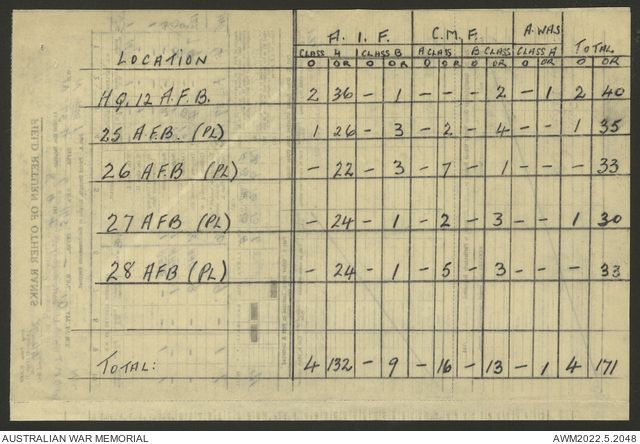 A. I. F. C. M. F. A. WAS
LOCATION CLASS 4 CLASS B A CLASS B CLASS CLASS A TOTAL
O OR O OR O OR O OR O OR O OR
HQ, 12 A.F.B. 2 36 – 1 – – – 2 – 1 2 40
25 A.F.B. (PL) 1 26 – 3 – 2 – 4 – – 1 35
26 A.F.B (PL) – 22 – 3 – 7 – 1 – – – 33
27 AFB (PL) – 24 – 1 – 2 – 3 – – 1 30
28 AFB (PL) – 24 – 1 – 5 – 3 – – – 33
TOTAL: 4 132 – 9 – 16 – 13 – 1 4 171
FIELD RETURN OF OTHER RANKS
AUSTRALIAN WAR MEMORIAL AWM2022.5.2048